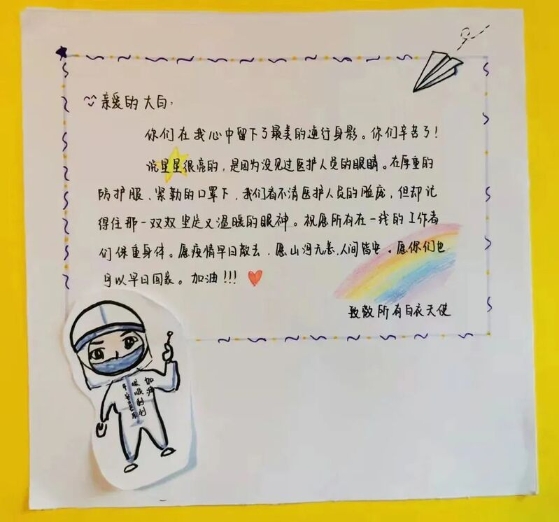 亲爱的大白：
你们在我心中留下了最美的逆行身影。你们辛苦了！
说星星很亮的，是因为没见过医护人员的眼睛。在厚重的
防护服、紧勒的口罩下，我们看不清医护人员的脸庞，但却记
得住那一双双坚定又温暖的眼神。祝愿所有在一线的工作者
们保重身体。愿疫情早日散去，愿山河无恙，人间皆安。愿你们也
可以早日回家。加油!!!
致敬所有白衣天使
加油